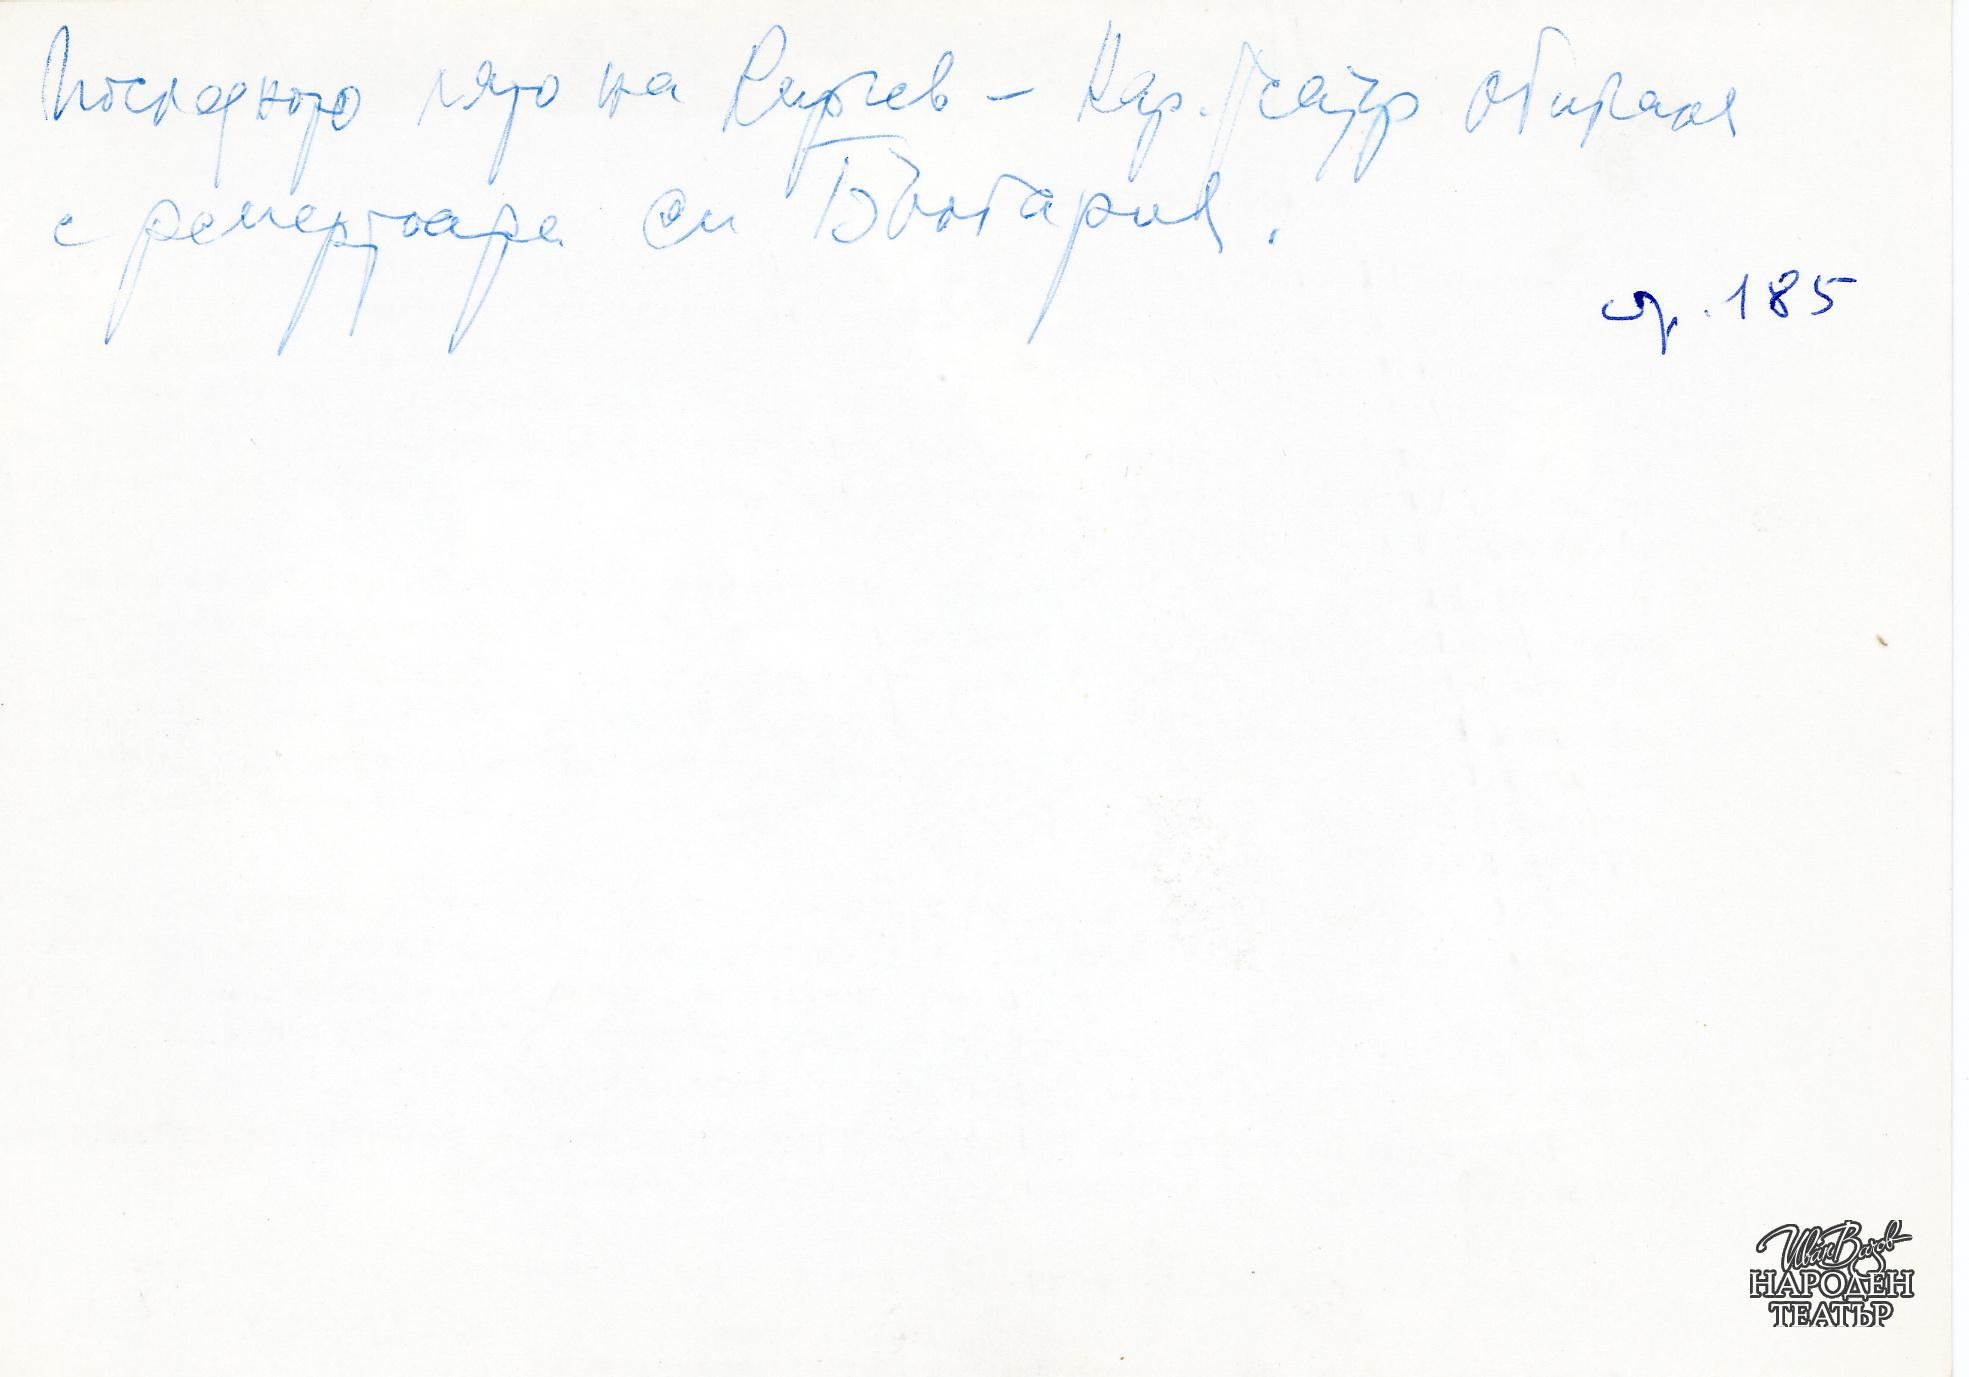 Последното лято на Кирчев – Нар. театър обикаля
с репертоара си България.
стр. 185
Иван Вазов
НАРОДЕН
ТЕАТЪР